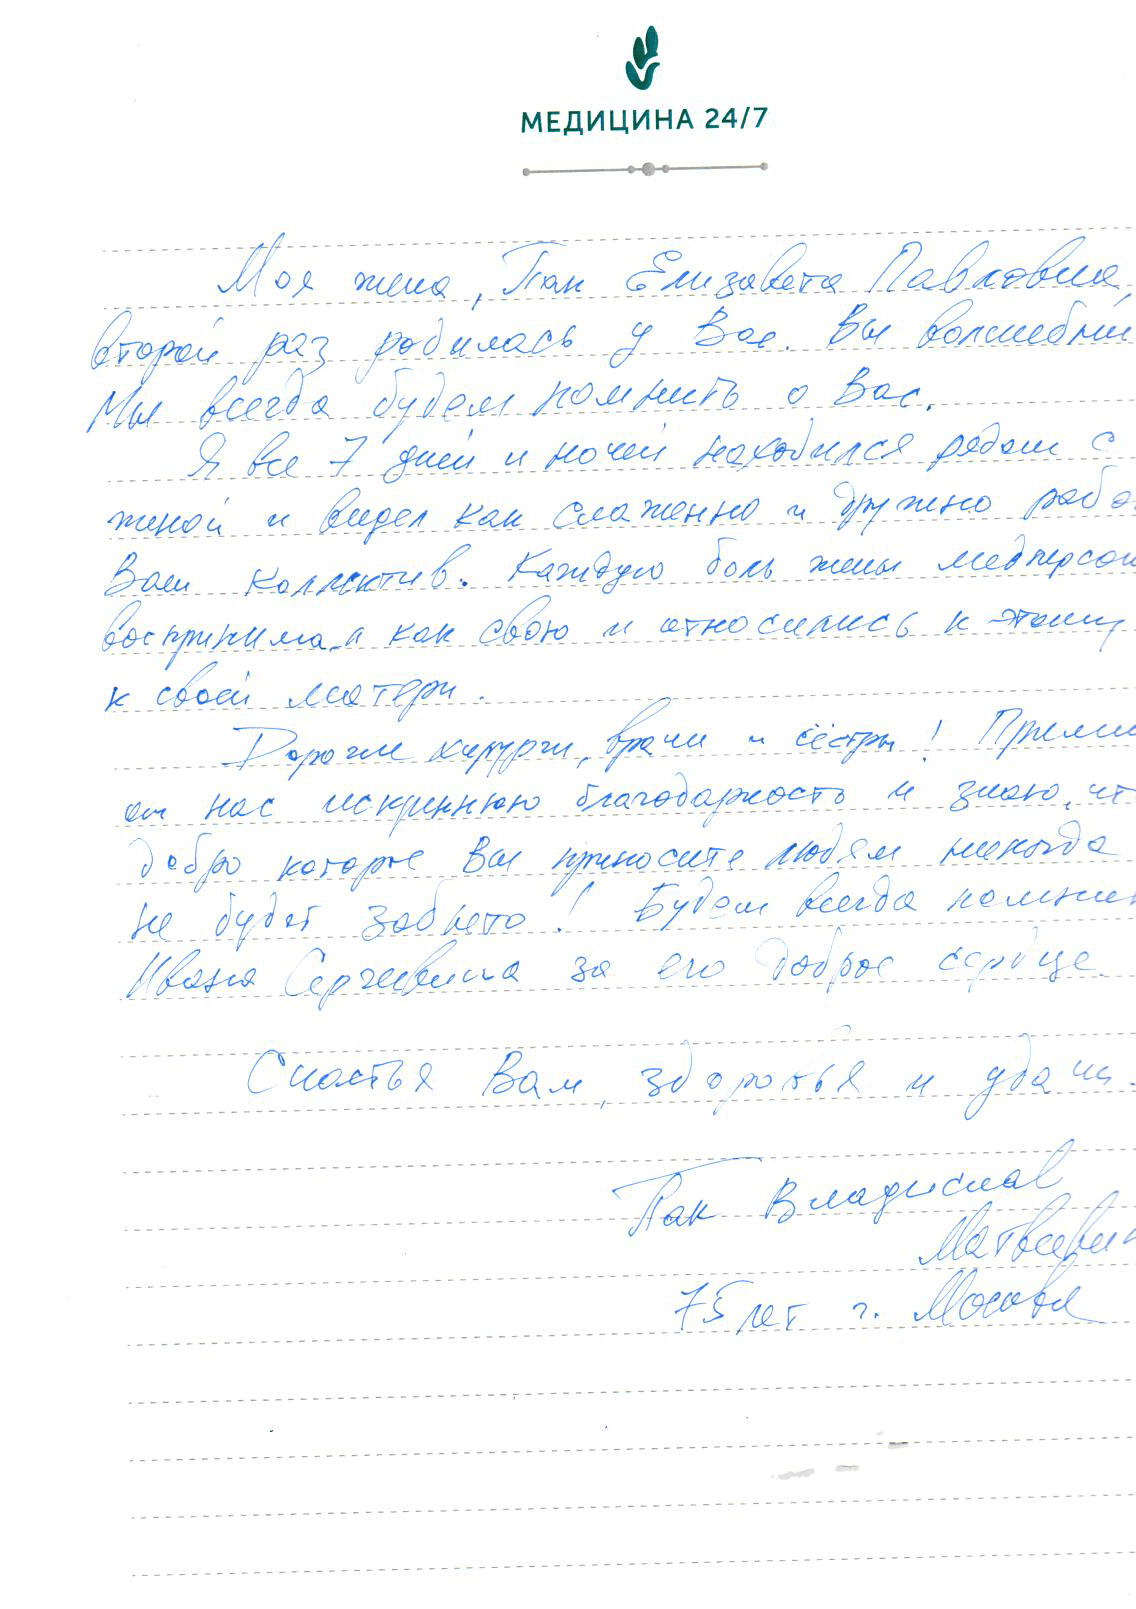 МЕДИЦИНА 24/7
Моя жена, Пак Елизавета Павловна,
второй раз родилась у Вас. Вы волшебни
Мы всегда будем помнить о Вас.
Я все 7 дней и ночей находился рядом с
женой и видел как слаженно и дружно рабо
Ваш коллектив. Каждую боль жены медперсон
воспринимал как свою и относились к
к своей матери.
Дорогие хирурги, врачи и сёстры! Прими
от нас искреннюю благодарность и знаю, чт
добро которое Вы приносите людям никогда
не будет забыто! Будем всегда помнит
Ивана Сергеевича за его доброе сердце.
Счастья Вам, здоровья и удачи.
Пак Владислав
Матвеевич
75 лет г. Москва